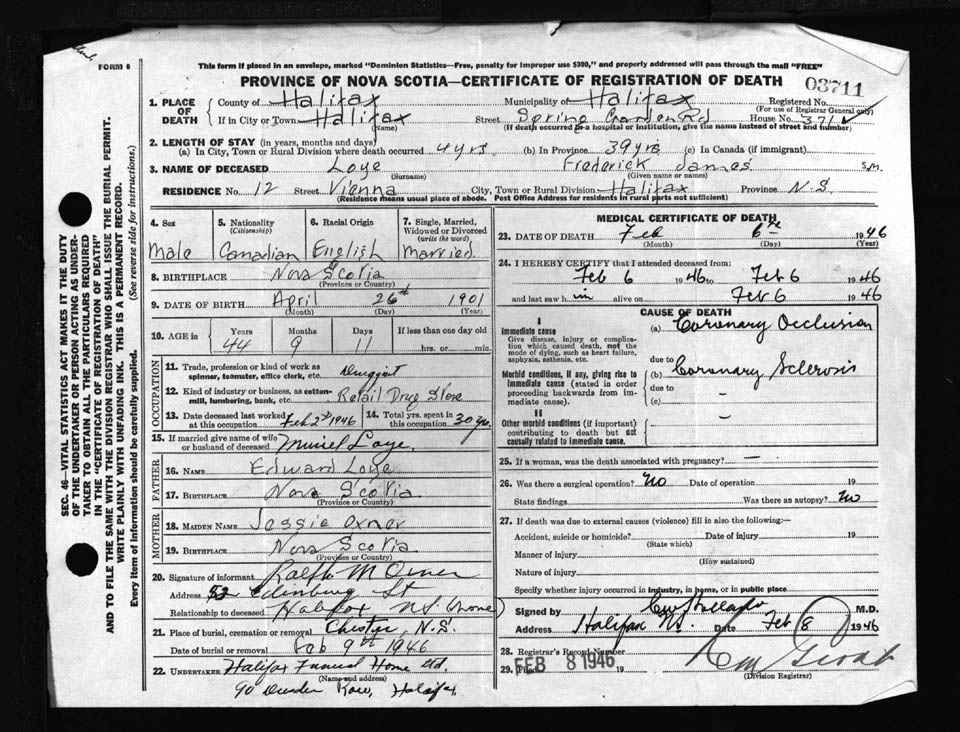 FORM 6
This form if placed in an envelope, marked "Dominion Statistics—Free, penalty for improper use $300," and properly addressed will pass through the mail "FREE"
PROVINCE OF NOVA SCOTIA—CERTIFICATE OF REGISTRATION OF DEATH
03711
SEC. 46—VITAL STATISTICS ACT MAKES IT THE DUTY
OF THE UNDERTAKER OR PERSON ACTING AS UNDER-
TAKER TO OBTAIN ALL THE PARTICULARS REQUIRED
IN THE "CERTIFICATE OF REGISTRATION OF DEATH"
AND TO FILE THE SAME WITH THE DIVISION REGISTRAR WHO SHALL ISSUE THE BURIAL PERMIT.
WRITE PLAINLY WITH UNFADING INK. THIS IS A PERMANENT RECORD.
Every item of information should be carefully supplied. (See reverse side for instructions.)
1. PLACE OF DEATH { County of Halifax Municipality of Halifax Registered No.
(For use of Registrar General only)
If in City or Town Halifax Street Spring Garden Rd House No. 371
(Name) (If death occurred in a hospital or institution, give the name instead of street and number)
2. LENGTH OF STAY (in years, months and days)
(a) In City, Town or Rural Division where death occurred 4 yrs (b) In Province 39 yrs (c) In Canada (if immigrant)
3. NAME OF DECEASED Loye Frederick James S.M.
(Surname) (Given name or names)
RESIDENCE No. 12 Street Vienna City, Town or Rural Division Halifax Province N.S.
(Residence means usual place of abode. Post Office Address for residents in rural parts not sufficient)
4. Sex
Male
5. Nationality
(Citizenship)
Canadian
6. Racial Origin
English
7. Single, Married,
Widowed or Divorced
(write the word)
Married
8. BIRTHPLACE Nova Scotia
(Province or Country)
9. DATE OF BIRTH April 26th 1901
(Month) (Day) (Year)
10. AGE in Years Months Days If less than one day old
44 9 11 hrs. or min.
OCCUPATION
11. Trade, profession or kind of work as
spinner, teamster, office clerk, etc. Druggist
12. Kind of industry or business, as cotton-
mill, lumbering, bank, etc. Retail Drug Store
13. Date deceased last worked
at this occupation Feb 2nd 1946
14. Total yrs. spent in
this occupation 30 yrs.
15. If married give name of wife
or husband of deceased Muriel Loye
FATHER
16. NAME Edward Loye
17. BIRTHPLACE Nova Scotia
(Province or Country)
MOTHER
18. MAIDEN NAME Jessie Oxner
19. BIRTHPLACE Nova Scotia
(Province or Country)
20. Signature of informant Ralph M
Address 52 Edinburg St
Relationship to deceased Halifax NS. (none)
21. Place of burial, cremation or removal Chester, N.S.
Date of burial or removal Feb 9th 1946
22. UNDERTAKER Halifax Funeral Home Ltd.
(Name and address)
90 Row, Halifax
MEDICAL CERTIFICATE OF DEATH
23. DATE OF DEATH Feb 6th 1946
(Month) (Day) (Year)
24. I HEREBY CERTIFY that I attended deceased from:
Feb 6 1946 to Feb 6 1946
and last saw him alive on Feb 6 1946
CAUSE OF DEATH
I
Immediate cause (a) Coronary Occlusion
Give disease, injury or complica-
tion which caused death, not the
mode of dying, such as heart failure,
asphyxia, asthenia, etc.
due to
Morbid conditions, if any, giving rise to
immediate cause (stated in order
proceeding backwards from imme-
diate cause).
(b) Coronary Sclerosis
due to
(c) —
II
Other morbid conditions (if important)
contributing to death but not
causally related to immediate cause. —
25. If a woman, was the death associated with pregnancy? —
26. Was there a surgical operation? No Date of operation 19
State findings Was there an autopsy? No
27. If death was due to external causes (violence) fill in also the following:—
Accident, suicide or homicide? Date of injury 19
(State which)
Manner of injury
(How sustained)
Nature of injury
Specify whether injury occurred in industry, in home, or in public place
Signed by M.D.
Address Halifax NS. Date Feb 8 1946
28. Registrar's Record Number
29. Filed 19
FEB 8 1946
(Division Registrar)